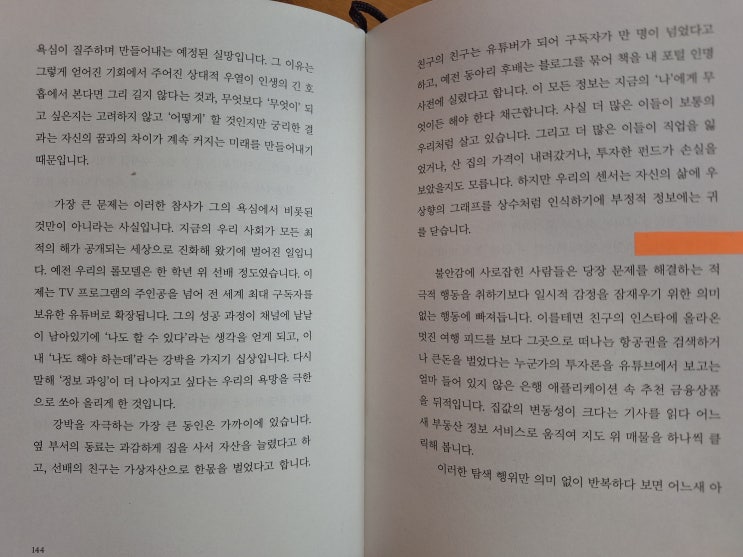 욕심이 질주하며 만들어내는 예정된 실망입니다. 그 이유는
그렇게 얻어진 기회에서 주어진 상대적 우열이 인생의 긴 호
흡에서 본다면 그리 길지 않다는 것과, 무엇보다 ‘무엇이’ 되
고 싶은지는 고려하지 않고 ‘어떻게’ 할 것인지만 궁리한 결
과는 자신의 꿈과의 차이가 계속 커지는 미래를 만들어내기
때문입니다.
가장 큰 문제는 이러한 참사가 그의 욕심에서 비롯된
것만이 아니라는 사실입니다. 지금의 우리 사회가 모든 최
적의 해가 공개되는 세상으로 진화해 왔기에 벌어진 일입니
다. 예전 우리의 롤모델은 한 학년 위 선배 정도였습니다. 이
제는 TV 프로그램의 주인공을 넘어 전 세계 최대 구독자를
보유한 유튜버로 확장됩니다. 그의 성공 과정이 채널에 낱낱
이 남아있기에 ‘나도 할 수 있다’라는 생각을 얻게 되고, 이
내 ‘나도 해야 하는데’라는 강박을 가지기 십상입니다. 다시
말해 ‘정보 과잉’이 더 나아지고 싶다는 우리의 욕망을 극한
으로 쏘아 올리게 한 것입니다.
강박을 자극하는 가장 큰 동인은 가까이에 있습니다.
옆 부서의 동료는 과감하게 집을 사서 자산을 늘렸다고 하
고, 선배의 친구는 가상자산으로 한몫을 벌었다고 합니다.
144
친구의 친구는 유튜버가 되어 구독자가 만 명이 넘었다고
하고, 예전 동아리 후배는 블로그를 묶어 책을 내 포털 인명
사전에 실렸다고 합니다. 이 모든 정보는 지금의 ‘나’에게 무
엇이든 해야 한다 채근합니다. 사실 더 많은 이들이 보통의
우리처럼 살고 있습니다. 그리고 더 많은 이들이 직업을 잃
었거나, 산 집의 가격이 내려갔거나, 투자한 펀드가 손실을
보았을지도 모릅니다. 하지만 우리의 센서는 자신의 삶에 우
상향의 그래프를 상수처럼 인식하기에 부정적 정보에는 귀
를 닫습니다.
불안감에 사로잡힌 사람들은 당장 문제를 해결하는 적
극적 행동을 취하기보다 일시적 감정을 잠재우기 위한 의미
없는 행동에 빠져듭니다. 이를테면 친구의 인스타에 올라온
멋진 여행 피드를 보다 그곳으로 떠나는 항공권을 검색하거
나 큰돈을 벌었다는 누군가의 투자론을 유튜브에서 보고는
얼마 들어 있지 않은 은행 애플리케이션 속 추천 금융상품
을 뒤적입니다. 집값의 변동성이 크다는 기사를 읽다 어느
새 부동산 정보 서비스로 옮직여 지도 위 매물을 하나씩 클
릭해 봅니다.
이러한 탐색 행위만 의미 없이 반복하다 보면 어느새 아